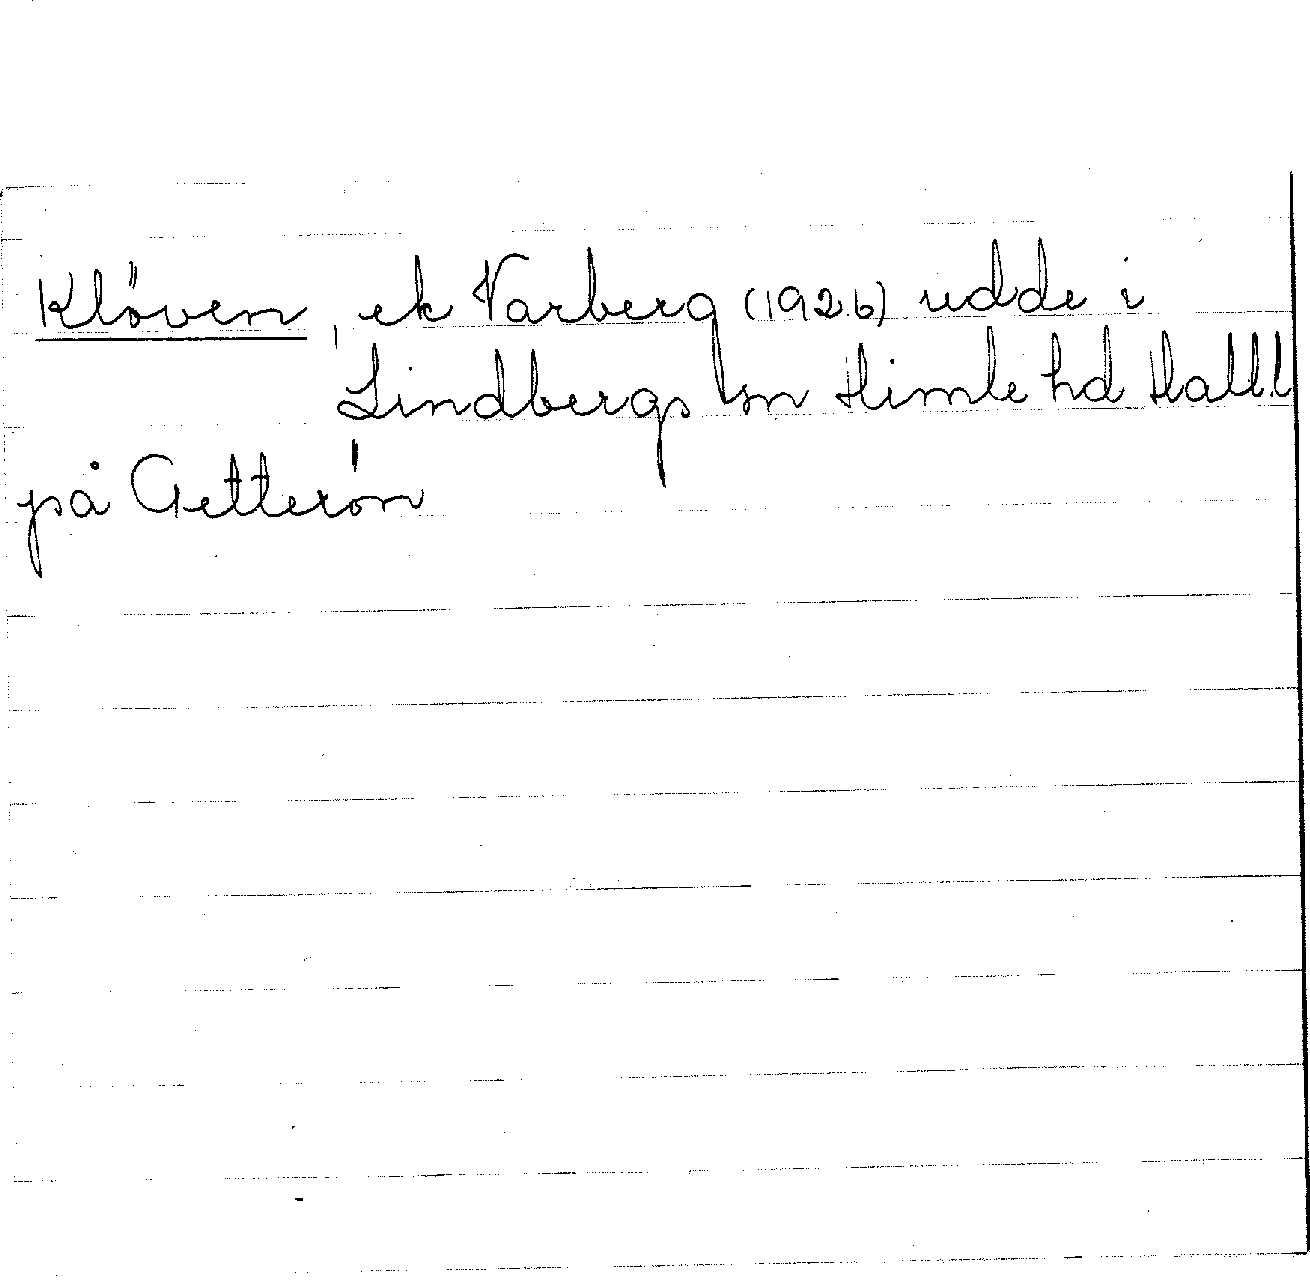 Klöven, ek Varberg (1926) udde i
Lindbergs sn Himle hd Hall.
på Getterön